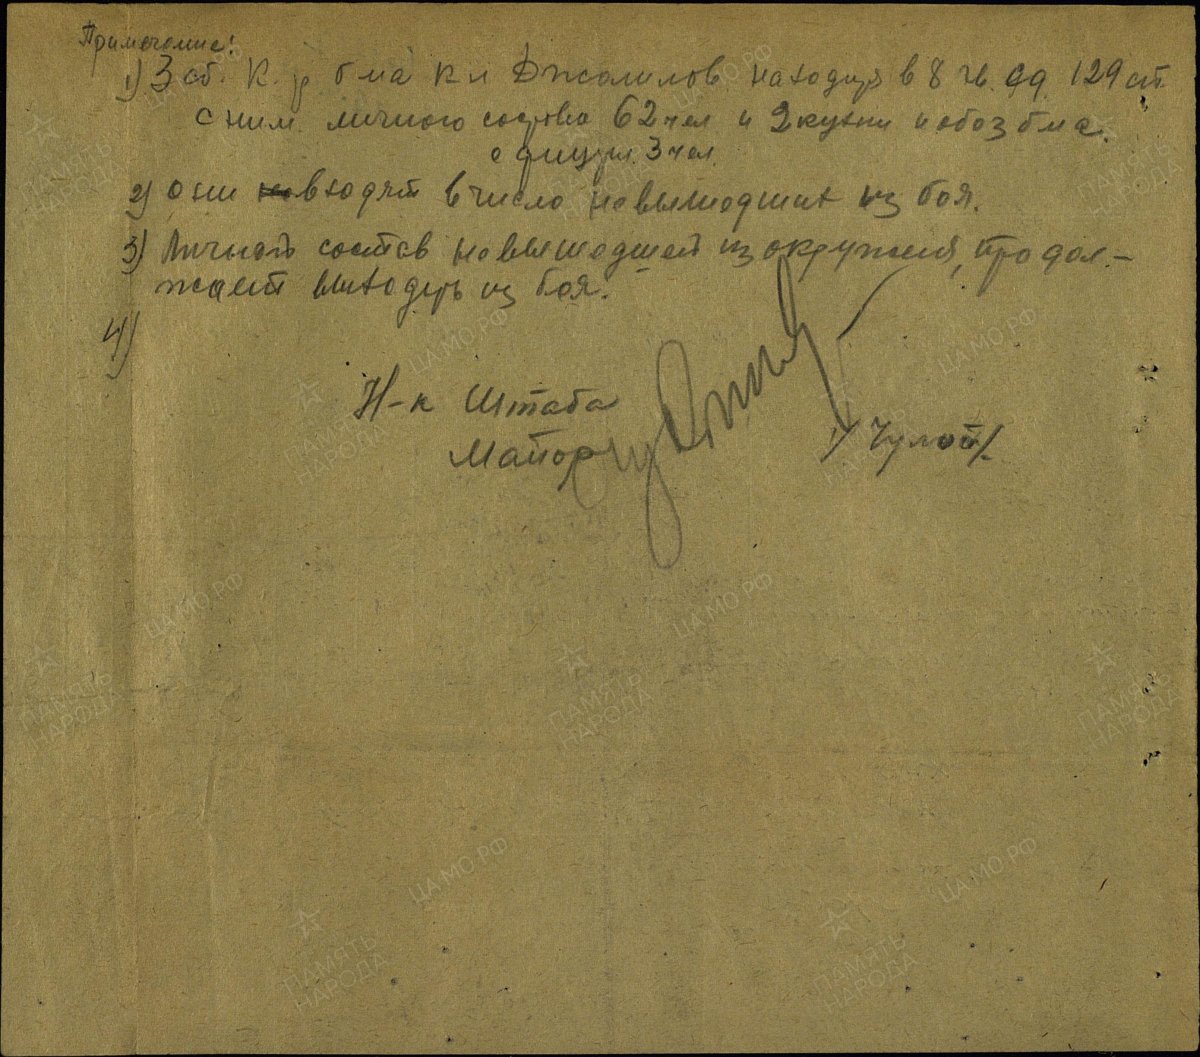 Примечание:
1) 3 сб. К-р бма к-н Джалилов находится в 8 гв. сд. 129 сп
с ним личного состава 62 чел и 2 кухни и обоз бма.
офицер. 3 чел.
2) они входят в число невышодших из боя.
3) Личный состав невышедшей из окружения, продол-
жает выходить из боя.
4)
Н-к Штаба
Майор